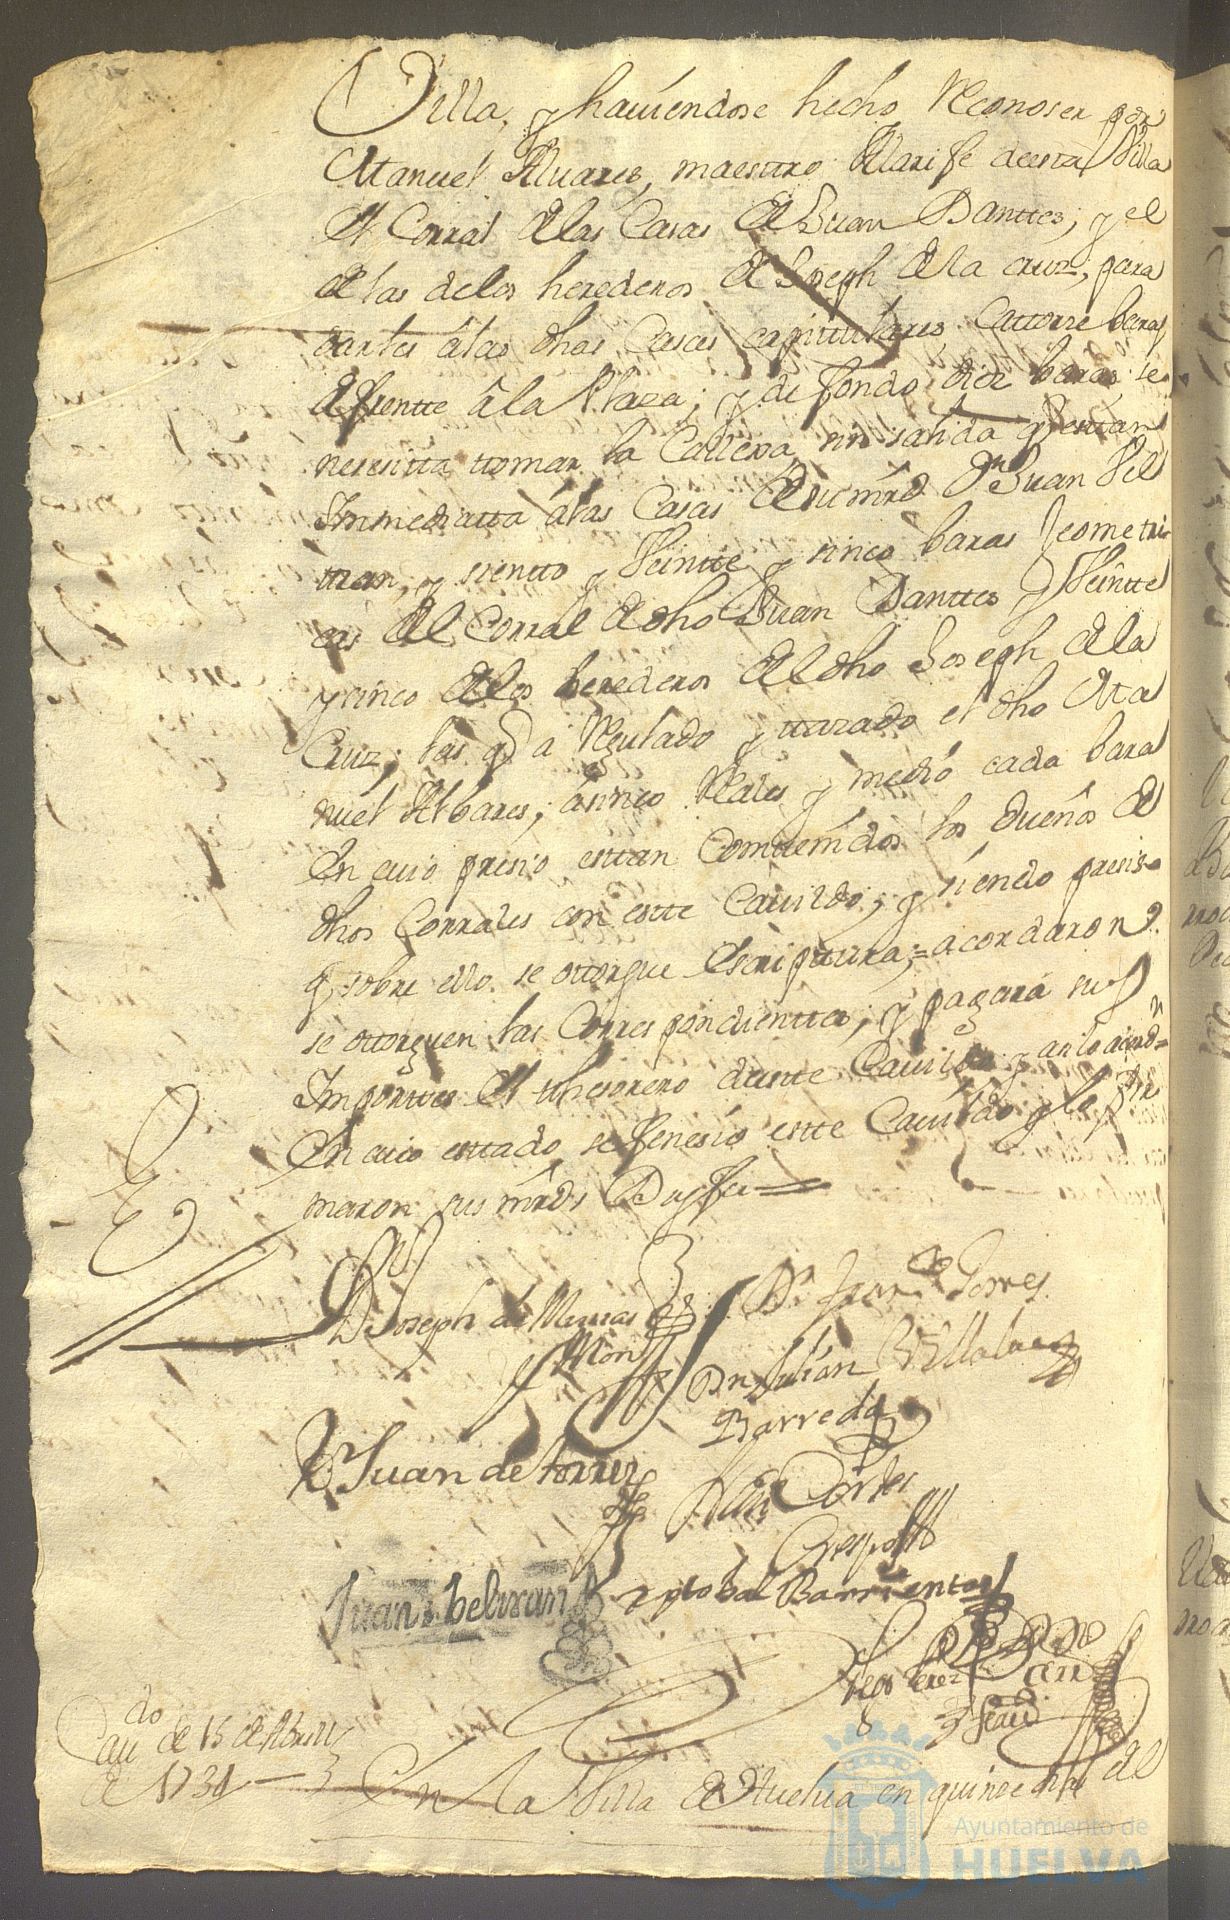 Villa, y haviendose hecho Reconoser por
Manuel Alvares, maestro Alarife deesta Villa
el Corral delas Casas de Juan Danttes, y el
de las delos herederos de Joseph de la Cruz, para
darles álas dhas Casas capitulares, Cattorse baras
de frentte â la Plaza; y de fondo diez baras, se
nesesitta ttomar la Callexa, sin salida q esttan
Immediatta álas Casas de su mrd Dn Juan Bel
ttran, y siento y Veintte y sinco baras Jeometri
cas del Corral de dho Juan Danttes y Veintte
y sinco delos herederos del dho Joseph de la
Cruz, las q a Regulado y ttazado el dho Ma
nuel Albares; ásinco Reales y medio cada bara
En cuio presio esttan Combenidos los dueños de
dhos Corrales con estte Cavildo; y siendo presiso
q sobre ello se ottorgue Escripttura;= acordaron q.
se ottorguen las Correspondienttes; y pagará sus
Importtes el thesorero destte Cavildo y asi lo acordn=
En cuio esttado se fenesio estte Cavildo y lo fir
maron sus mrds Doy fee=
D Joseph de
Dn Juan de Torres
Dn Julián Villalva
Barreda
Juan de torres
Cortes
Crespo
Juan beltran
Xptobal Barrientos
Diego Perez
Cavdo de 15 de Abril
de 1731
En La Villa de Huelva en quinse dias del
Ayuntamiento de
HUELVA